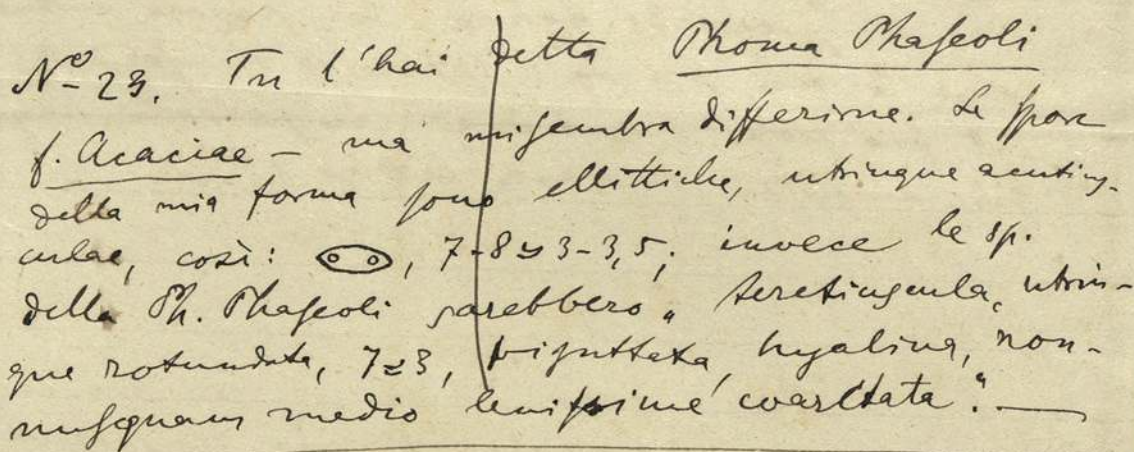 No 23. Tu l'hai detta Phoma Phaseoli
f. Acaciae – ma mi sembra differirne. Le spore
della mia forma sono ellittiche, utrinque acutius-
culae, così: , 7-8≍3-3,5; invece le sp.
della Ph. Phaseoli sarebbero „teretiuscula, utrin-
que rotundata, 7≍3, biguttata, hyalina, non-
nusquam medio lenissime coarctata". —